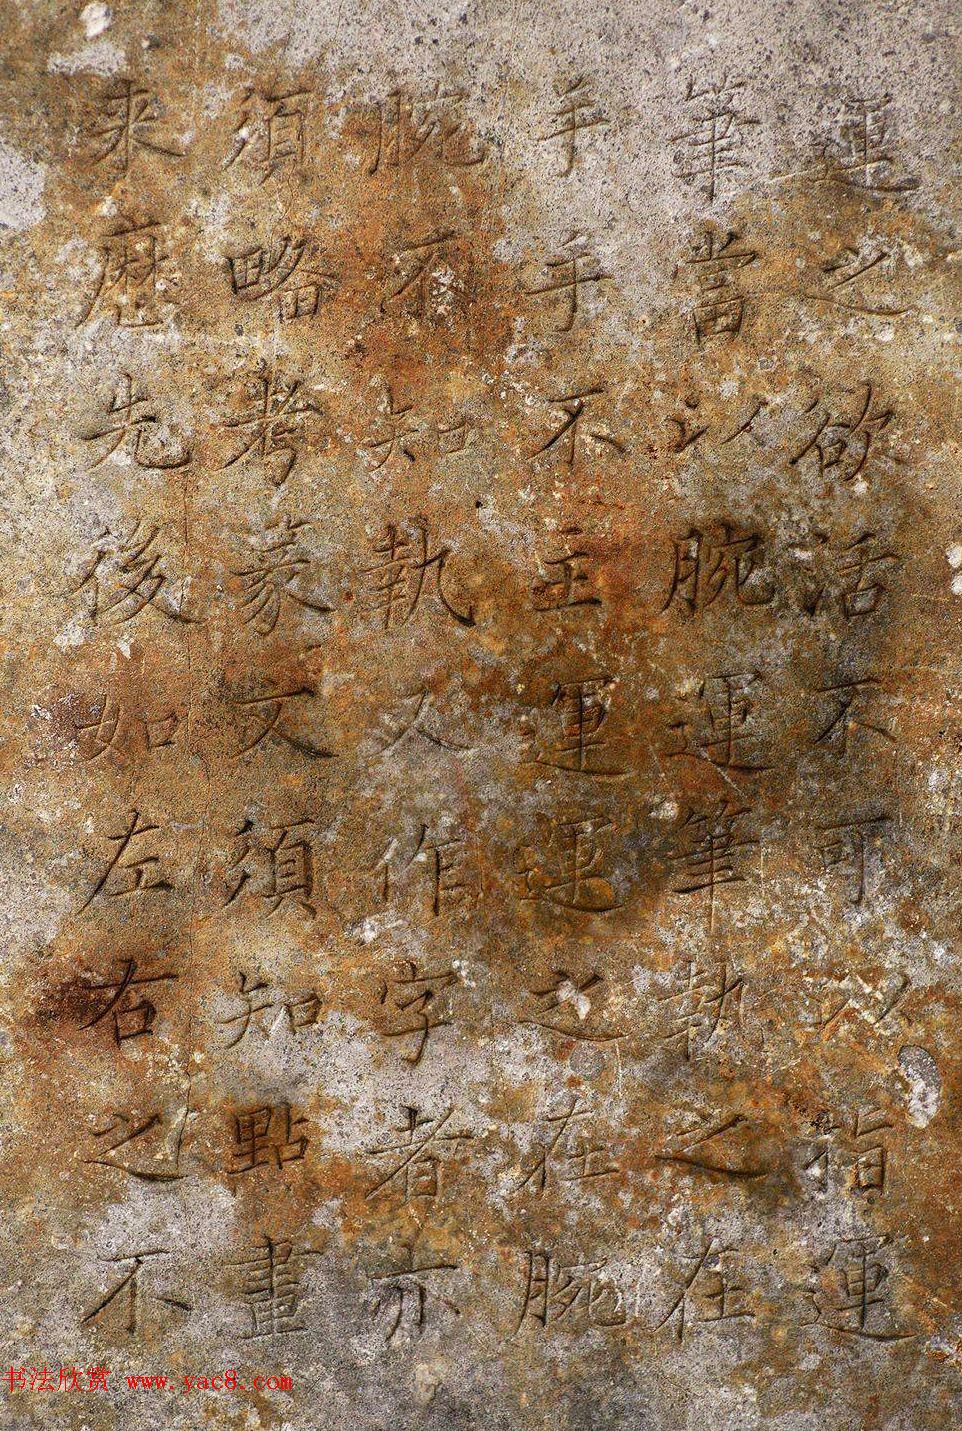 運之欲活不可以指運
筆當以腕運筆執之在
手手不主運運之在腕
腕不知執又作字者亦
須略考篆文須知點畫
來歷先後如左右之不
书法欣赏 www.yac8.com